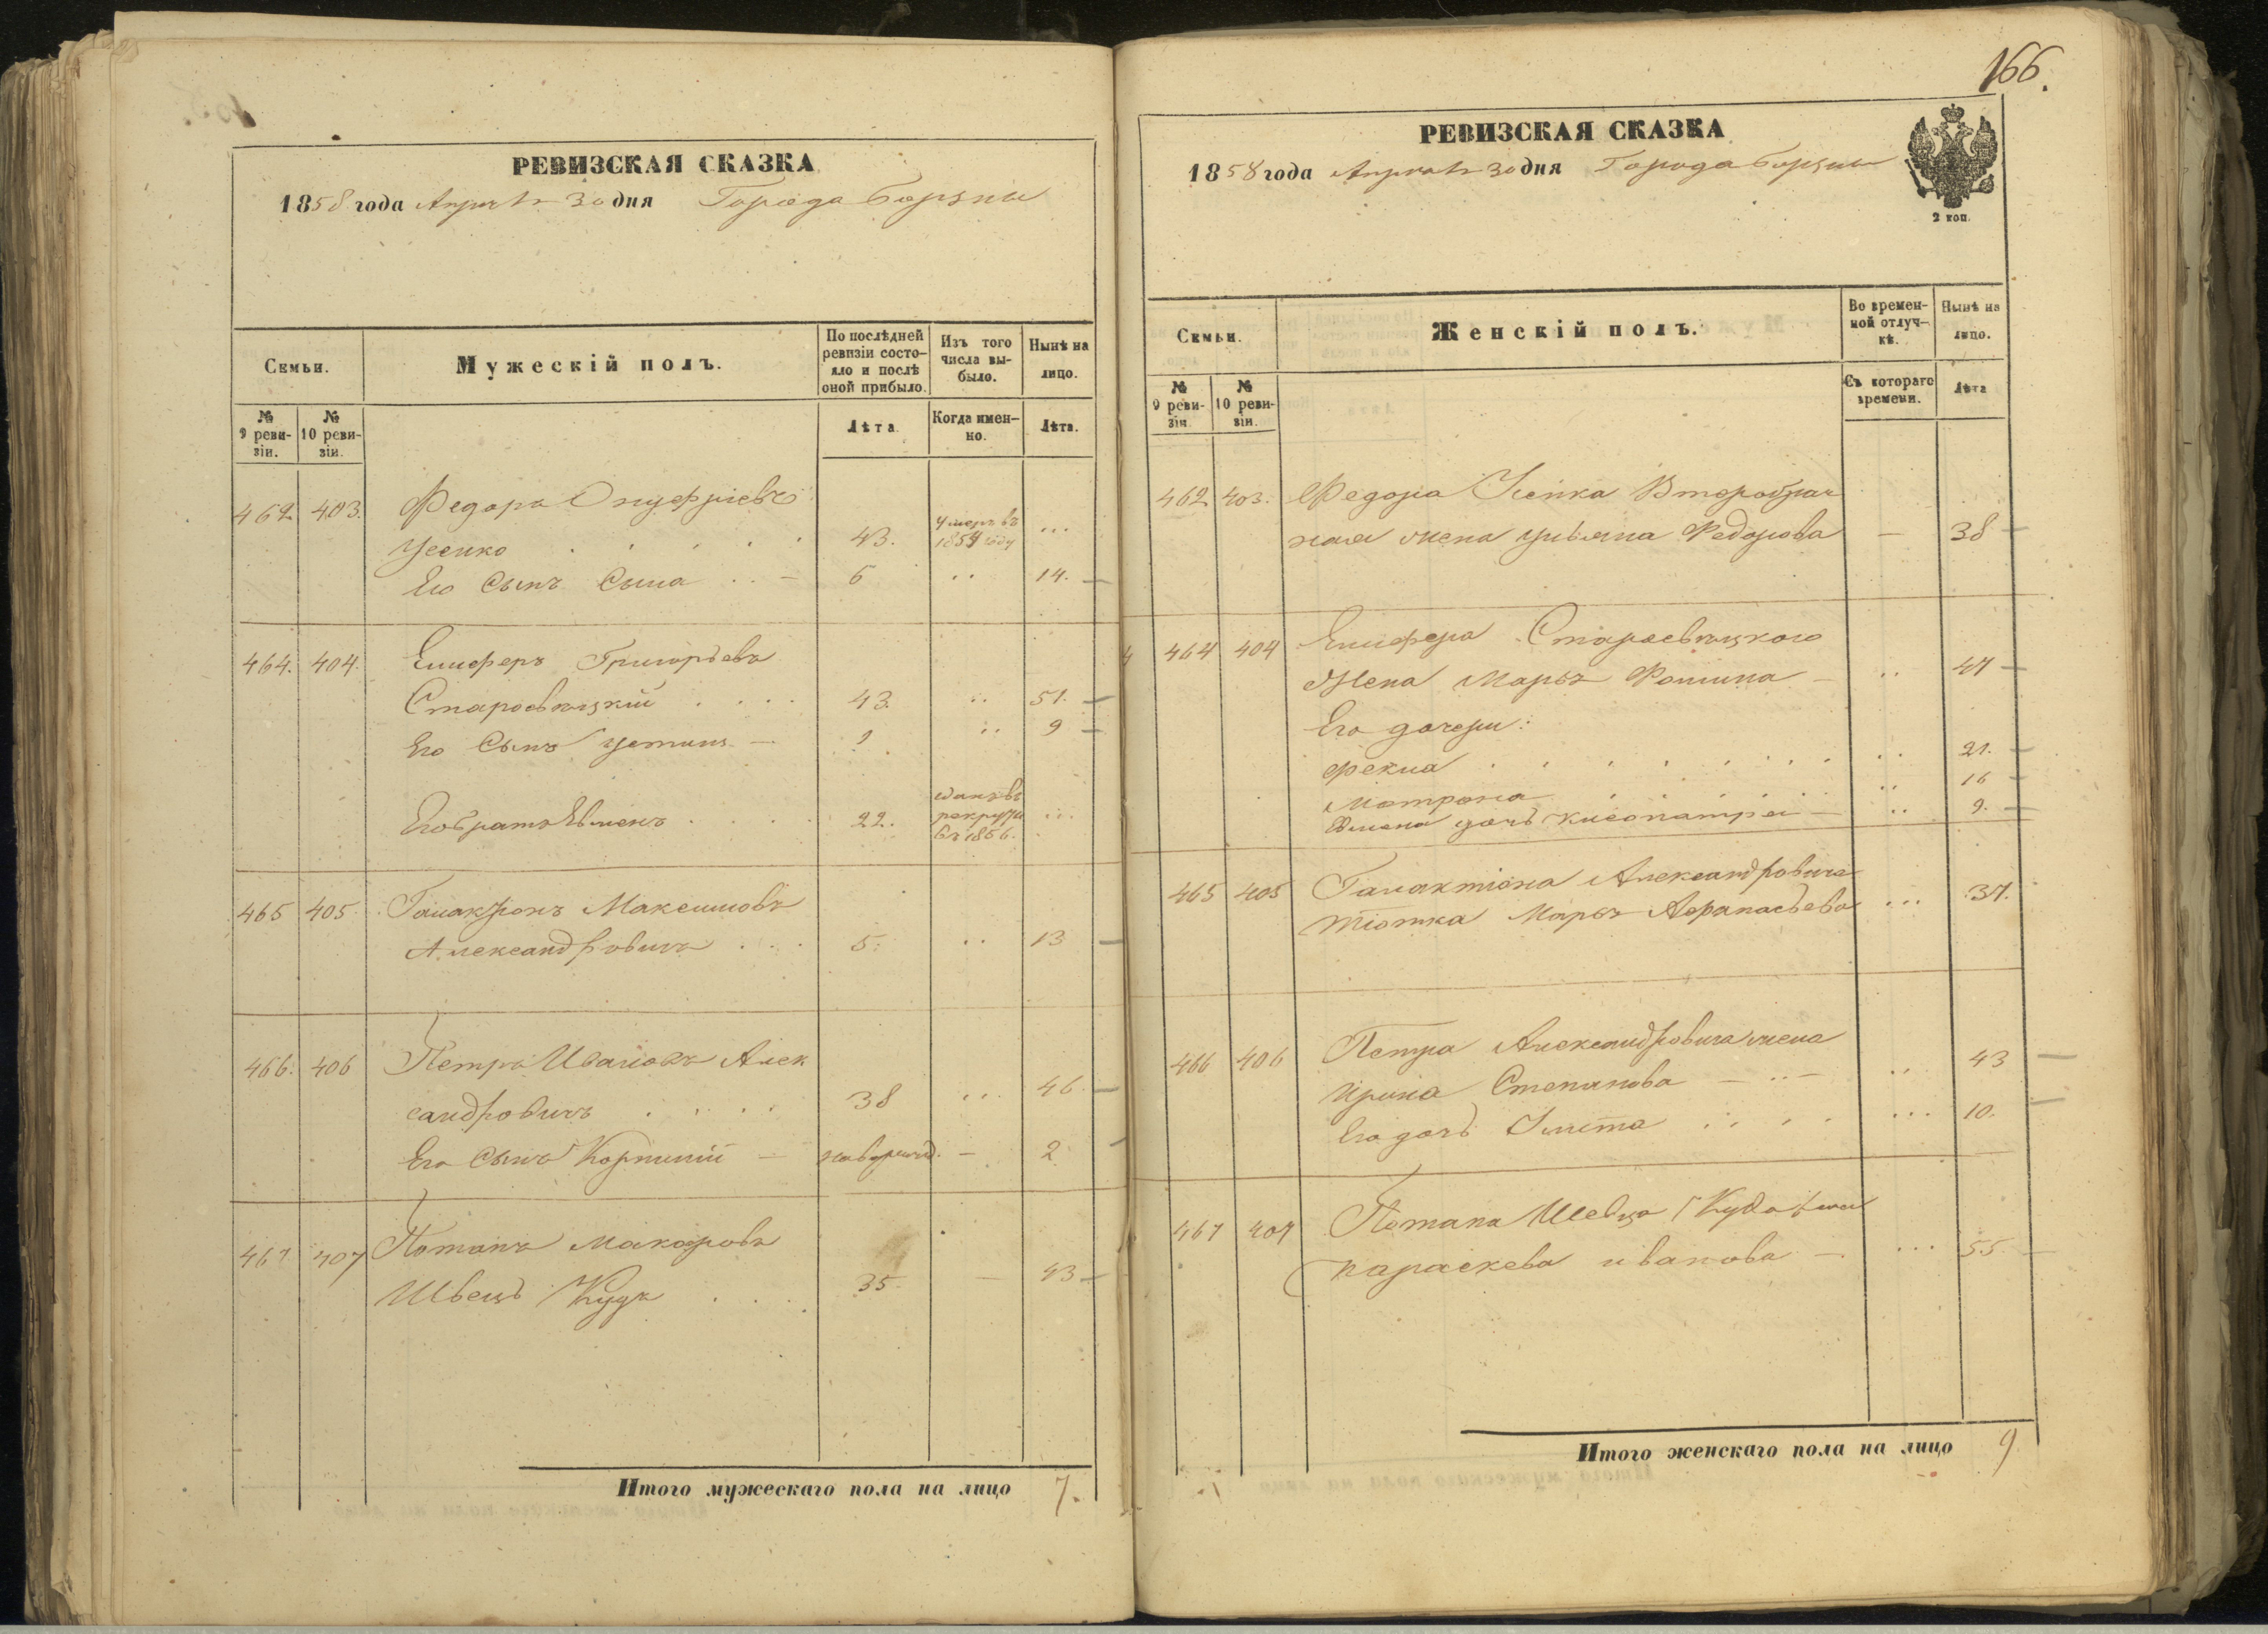 РЕВИЗСКАЯ СКАЗКА
1858 года Апреля 30 дня Города Борзны
Семьи.
Мужескій полъ.
По послѣдней ревизіи состояло и послѣ оной прибыло.
Изъ того числа выбыло.
Нынѣ на лицо.
№ 9 ревизіи.
№ 10 ревизіи.
Лѣта.
Когда именно.
Лѣта.
462 403. Федоръ Онуфріевъ
Усенко . . . . . 43. умеръ въ 1854 году ...
Его Сынъ Сыла .. – 6 .. 14. –
464. 404. Елисферъ Григорьевъ
Старосвѣцкій . . . . 43. .. 51. –
Его Сынъ Устинъ – 9 .. 9 –
Его братъ Евменъ . . . . 22. рекруты въ 1856. ...
465 405 Галактіонъ Максимовъ
Александровичъ . . . 5. .. 13 –
466. 406 Петръ Ивановъ Алек
сандровичъ . . . . 38 ... 46. –
Его Сынъ Корнилій – новорожд. – 2
467 407 Потапъ Макаровъ
Швецъ Куда . . . . 35 – 43 –
Итого мужескаго пола на лицо 7.
166.
РЕВИЗСКАЯ СКАЗКА
1858 года Апреля 30 дня Города Борзны
2 коп.
Семьи.
Женскій полъ.
Во временной отлучкѣ.
Нынѣ на лицо.
№ 9 ревизіи.
№ 10 ревизіи.
Съ котораго времени.
Лѣта
462 403. Федора Усенка Второбрач
ная жена Ульяна Федорова – 38 –
464 404 Елисфера Старосвѣцкого
Жена Марья Фомина – .. 47 –
Его дочери:
Фекла . . . . . . . . .. 21. –
Матрона . . . . . . .. 16 –
Евмена дочь Клеопатра – .. 9. –
465 405 Галактіона Александровича
тіотка Марья Афанасьева ... 37.
466 406 Петра Александровича жена
Ирина Степанова – .. – .. 43 –
Его дочь Улита .. . . ... 10. –
467 407 Потапа Швеца Куда жена
параскева иванова – ... 55. –
Итого женскаго пола на лицо 9